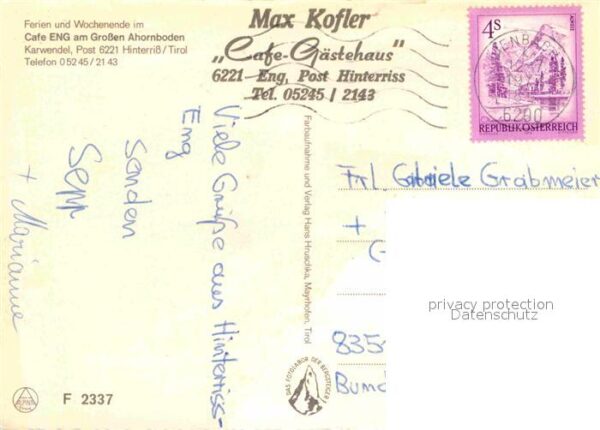 Ferien und Wochenende im
Cafe ENG am Großen Ahornboden
Karwendel, Post 6221 Hinterriß/Tirol
Telefon 05245/2143
Max Kofler
„Cafe-Gästehaus"
6221 Eng, Post Hinterriss
Tel. 05245 / 2143
4S
REPUBLIK ÖSTERREICH
6200
Viele Grüße aus Hinterriss-
Eng
senden
Sepp
+ Marianne
Farbaufnahme und Verlag Hans Hruschka, Mayrhofen, Tirol
DAS FOTOLABOR DER BERGSTEIGER
Frl. Gabriele Grabmeier
+
G
835
Bund
privacy protection
Datenschutz
F 2337